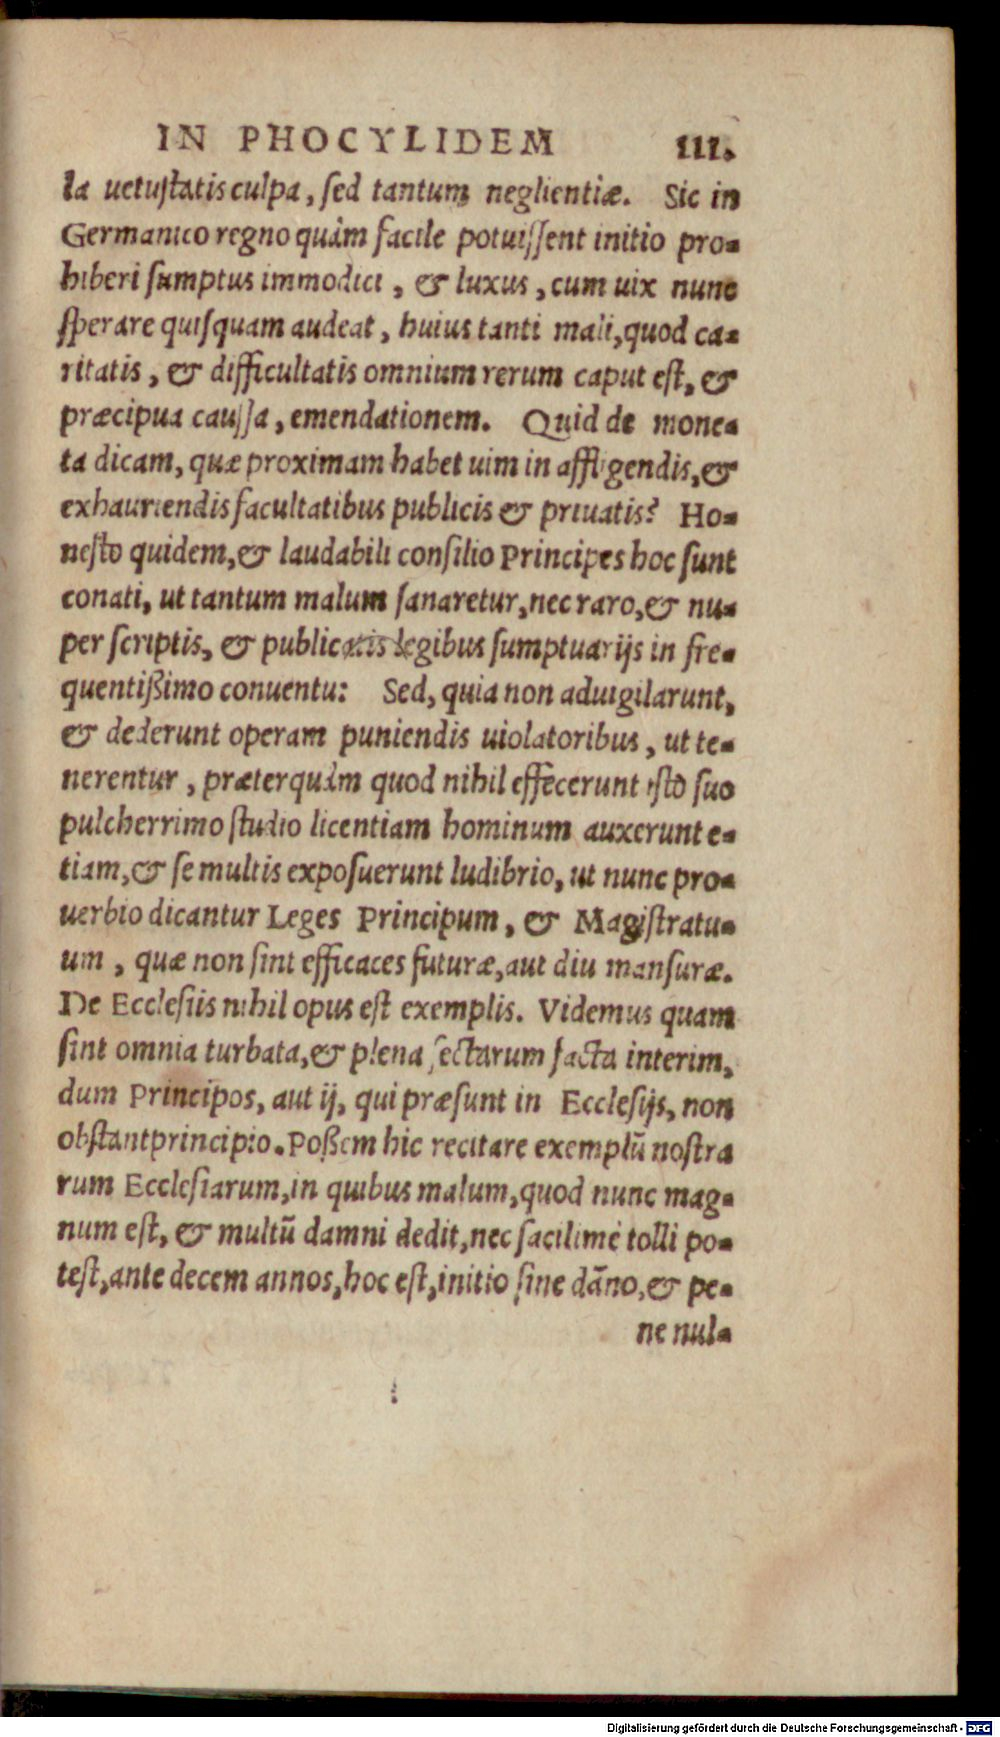 IN PHOCYLIDEM III.
la uetustatis culpa, sed tantum neglientiæ. Sic in
Germanico regno quàm facile potuissent initio pro-
hiberi sumptus immodici, & luxus, cum uix nunc
sperare quisquam audeat, huius tanti mali, quod ca-
ritatis, & difficultatis omnium rerum caput est, &
præcipua caussa, emendationem. Quid de mone-
ta dicam, quæ proximam habet uim in affligendis, &
exhauriendis facultatibus publicis & priuatis? Ho-
nesto quidem, & laudabili consilio Principes hoc sunt
conati, ut tantum malum sanaretur, nec raro, & nu-
per scriptis, & publicatis legibus sumptuarijs in fre-
quentißimo conuentu: Sed, quia non aduigilarunt,
& dederunt operam puniendis uiolatoribus, ut te-
nerentur, præterquàm quod nihil effecerunt isto suo
pulcherrimo studio licentiam hominum auxerunt e-
tiam, & se multis exposuerunt ludibrio, ut nunc pro-
uerbio dicantur Leges Principum, & Magistratu-
um, quæ non sint efficaces futuræ, aut diu mansuræ.
De Ecclesiis nihil opus est exemplis. Videmus quam
sint omnia turbata, & plena sectarum facta interim,
dum Principos, aut ij, qui præsunt in Ecclesijs, non
obstant principio. Poßem hic recitare exemplū nostra
rum Ecclesiarum, in quibus malum, quod nunc mag-
num est, & multū damni dedit, nec facilimè tolli po-
test, ante decem annos, hoc est, initio sine dāno, & pe-
ne nul-
Digitalisierung gefördert durch die Deutsche Forschungsgemeinschaft - DFG